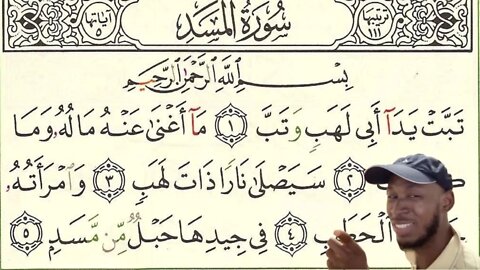 ترتيبها ١١١ سُورَةُ المَسَد آياتها ٥
بِسْمِ ٱللَّهِ ٱلرَّحْمَٰنِ ٱلرَّحِيمِ
تَبَّتْ يَدَآ أَبِى لَهَبٍ وَتَبَّ ١ مَآ أَغْنَىٰ عَنْهُ مَالُهُۥ وَمَا
٢ سَيَصْلَىٰ نَارًا ذَاتَ لَهَبٍ ٣ وَٱمْرَأَتُهُۥ
ٱلْحَطَبِ ٤ فِى جِيدِهَا حَبْلٌ مِّن مَّسَدٍ ٥